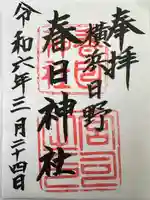 奉拝
横浜日野
春日神社
令和六年三月二十四日